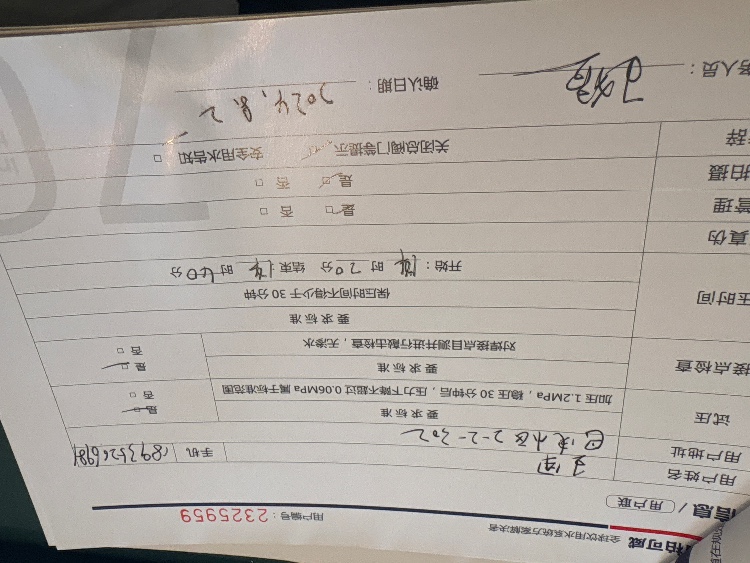 柏可威 全球饮用水系统方案解决者
信息 / 用户联 用户编号：2325959
用户姓名 手机 18935206984
用户地址 2-2-302
试压 要求标准 是 □
加压1.2MPa，稳压30分钟后，压力下降不超过0.06MPa属于标准范围 否 □
接点检查 要求标准 是 □
对焊接点目测并进行敲击检查，无渗水 否 □
压时间 要求标准
保压时间不得少于30分钟
开始： 时20分 结束 时40分
真伪
管理 是 □ 否 □
拍摄 是 □ 否 □
辞 关闭总阀门等提示 安全用水告知 □
务人员： 确认日期：2024.8.2